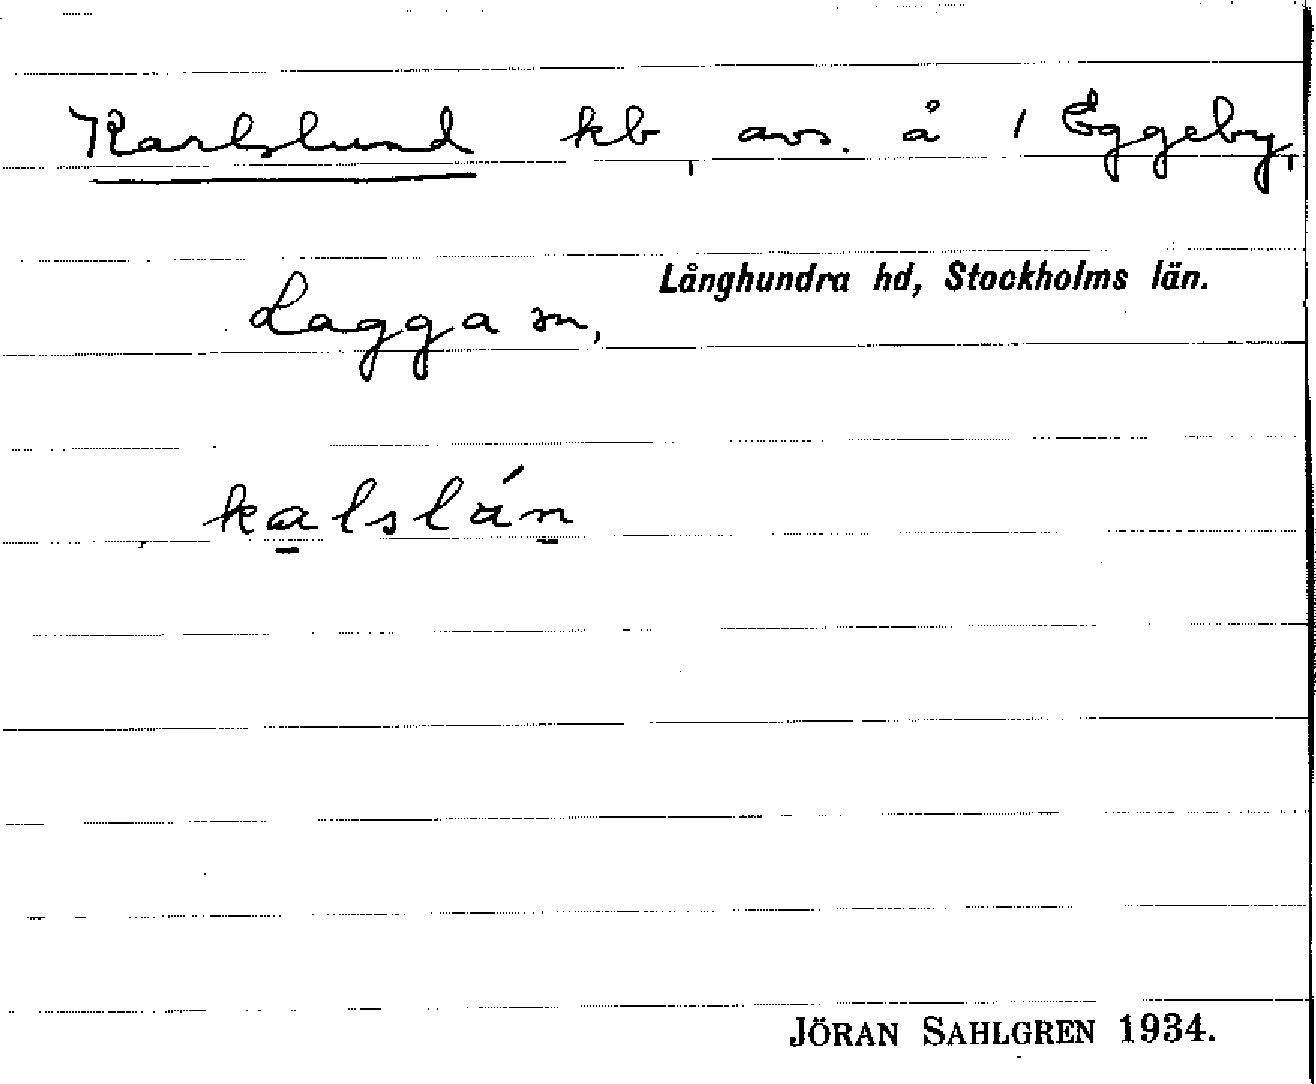 Karlslund kb, avs. å 1 Eggeby,
Långhundra hd, Stockholms län.
Lagga sn,
kalslán
JÖRAN SAHLGREN 1934.